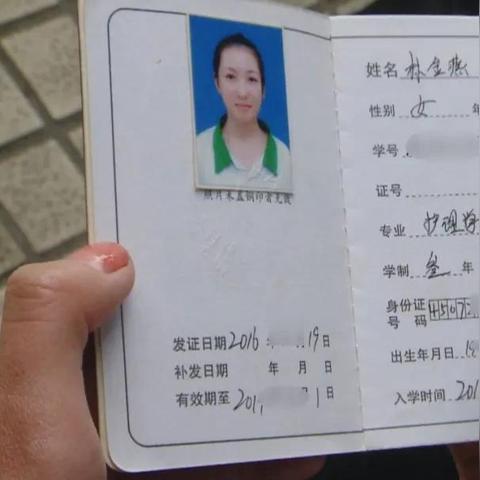 照片未盖钢印者无效
发证日期2016 19日
补发日期 年 月 日
有效期至201 1日
姓名 林金燕
性别 女 年
学号
证号
专业 护理学
学制 叁 年
身份证 4507
号 码
出生年月日 19
入学时间 201